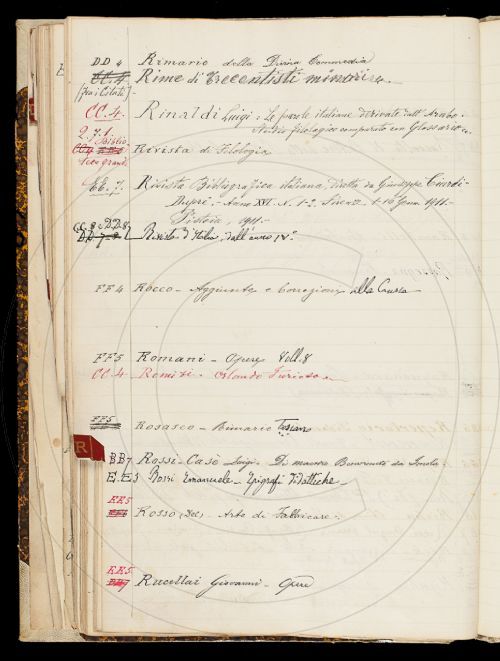 DD 4 Rimario della Divina Commedia
CC.4. Rime di Trecentisti minori
[fra i Citati]
CC.4. Rinaldi Luigi. Le parole italiane derivate dall'Arabo.
Studio filologico comparato con Glossario
2.7.1.
Biblio
CC4 Rivista di Filologia
Teca grande
EE.7. Rivista Bibliografica italiana, diretta da Giuseppe Ciardi-
Dupré. - Anno XVI N. 1-2. Firenze, 1-16 Genn 1911.-
Pistoia, 1911.-
CC.8 e DD.8
DD.7-8 Rivista d'Italia, dall'anno IV°.
FF4 Rocco - Aggiunte e Correzioni alla Crusca
FF5 Romani - Opere Voll. 8
CC.4 - Orlando Furioso
FF5
Rosasco - Rimario Toscano
R
BB7 Rossi-Casè Luigi. Di maestro Benvenuto da Imola
E.E3 Rossi Emanuele - Epigrafi Didattiche
EE5
Rosso (Del) - Arte di Fabbricare.
EE5.
BB7 Rucellai Giovanni - Opere